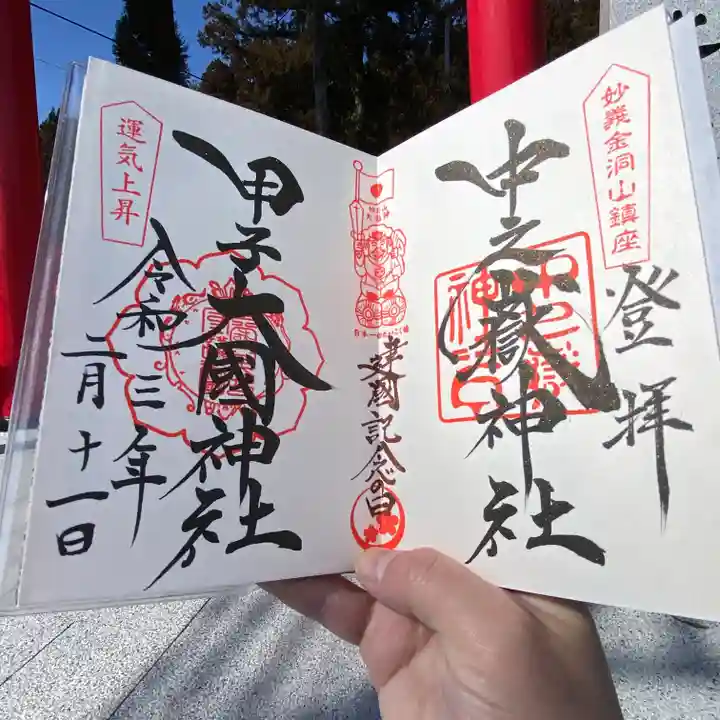 妙義金洞山鎮座
登拝
中之嶽神社
建國記念の日
甲子大國神社
運気上昇
令和三年
二月十一日